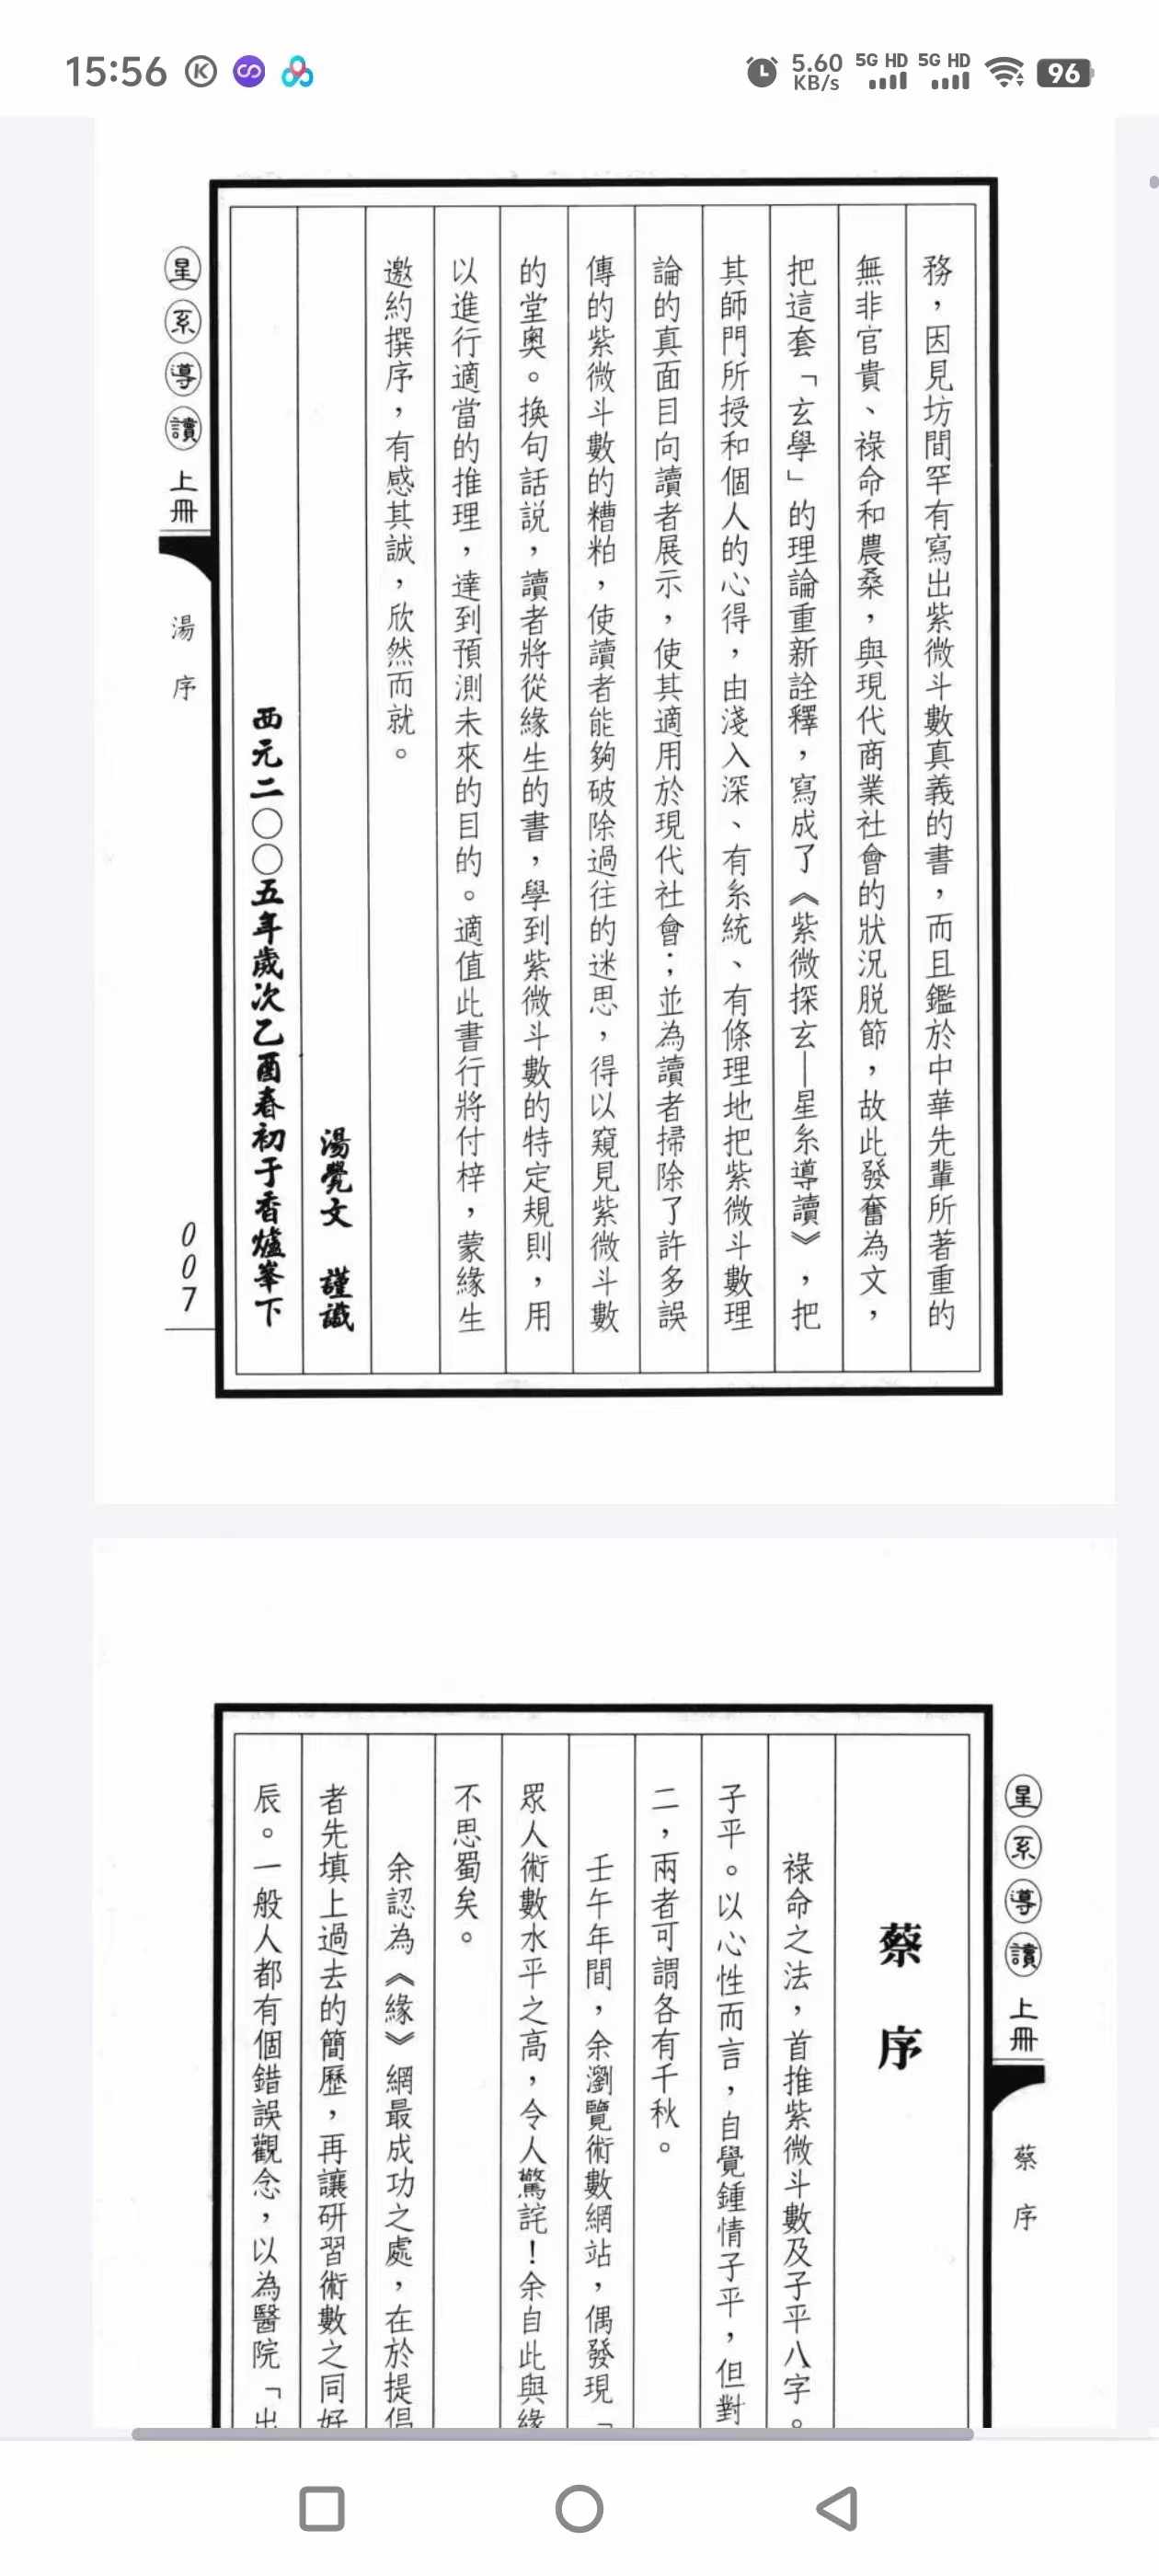 15:56
5.60 KB/s
5G HD 5G HD
96
務，因見坊間罕有寫出紫微斗數真義的書，而且鑑於中華先輩所著重的
無非官貴、祿命和農桑，與現代商業社會的狀況脫節，故此發奮為文，
把這套「玄學」的理論重新詮釋，寫成了《紫微探玄—星系導讀》，把
其師門所授和個人的心得，由淺入深、有系統、有條理地把紫微斗數理
論的真面目向讀者展示，使其適用於現代社會；並為讀者掃除了許多誤
傳的紫微斗數的糟粕，使讀者能夠破除過往的迷思，得以窺見紫微斗數
的堂奧。換句話說，讀者將從緣生的書，學到紫微斗數的特定規則，用
以進行適當的推理，達到預測未來的目的。適值此書行將付梓，蒙緣生
邀約撰序，有感其誠，欣然而就。
湯覺文 謹識
西元二〇〇五年歲次乙酉春初于香爐峯下
星系導讀 上冊 湯序
007
星系導讀 上冊 蔡序
蔡序
祿命之法，首推紫微斗數及子平八字。
子平。以心性而言，自覺鍾情子平，但對
二，兩者可謂各有千秋。
壬午年間，余瀏覽術數網站，偶發現「
眾人術數水平之高，令人驚詫！余自此與緣
不思蜀矣。
余認為《緣》網最成功之處，在於提倡
者先填上過去的簡歷，再讓研習術數之同好
辰。一般人都有個錯誤觀念，以為醫院「出